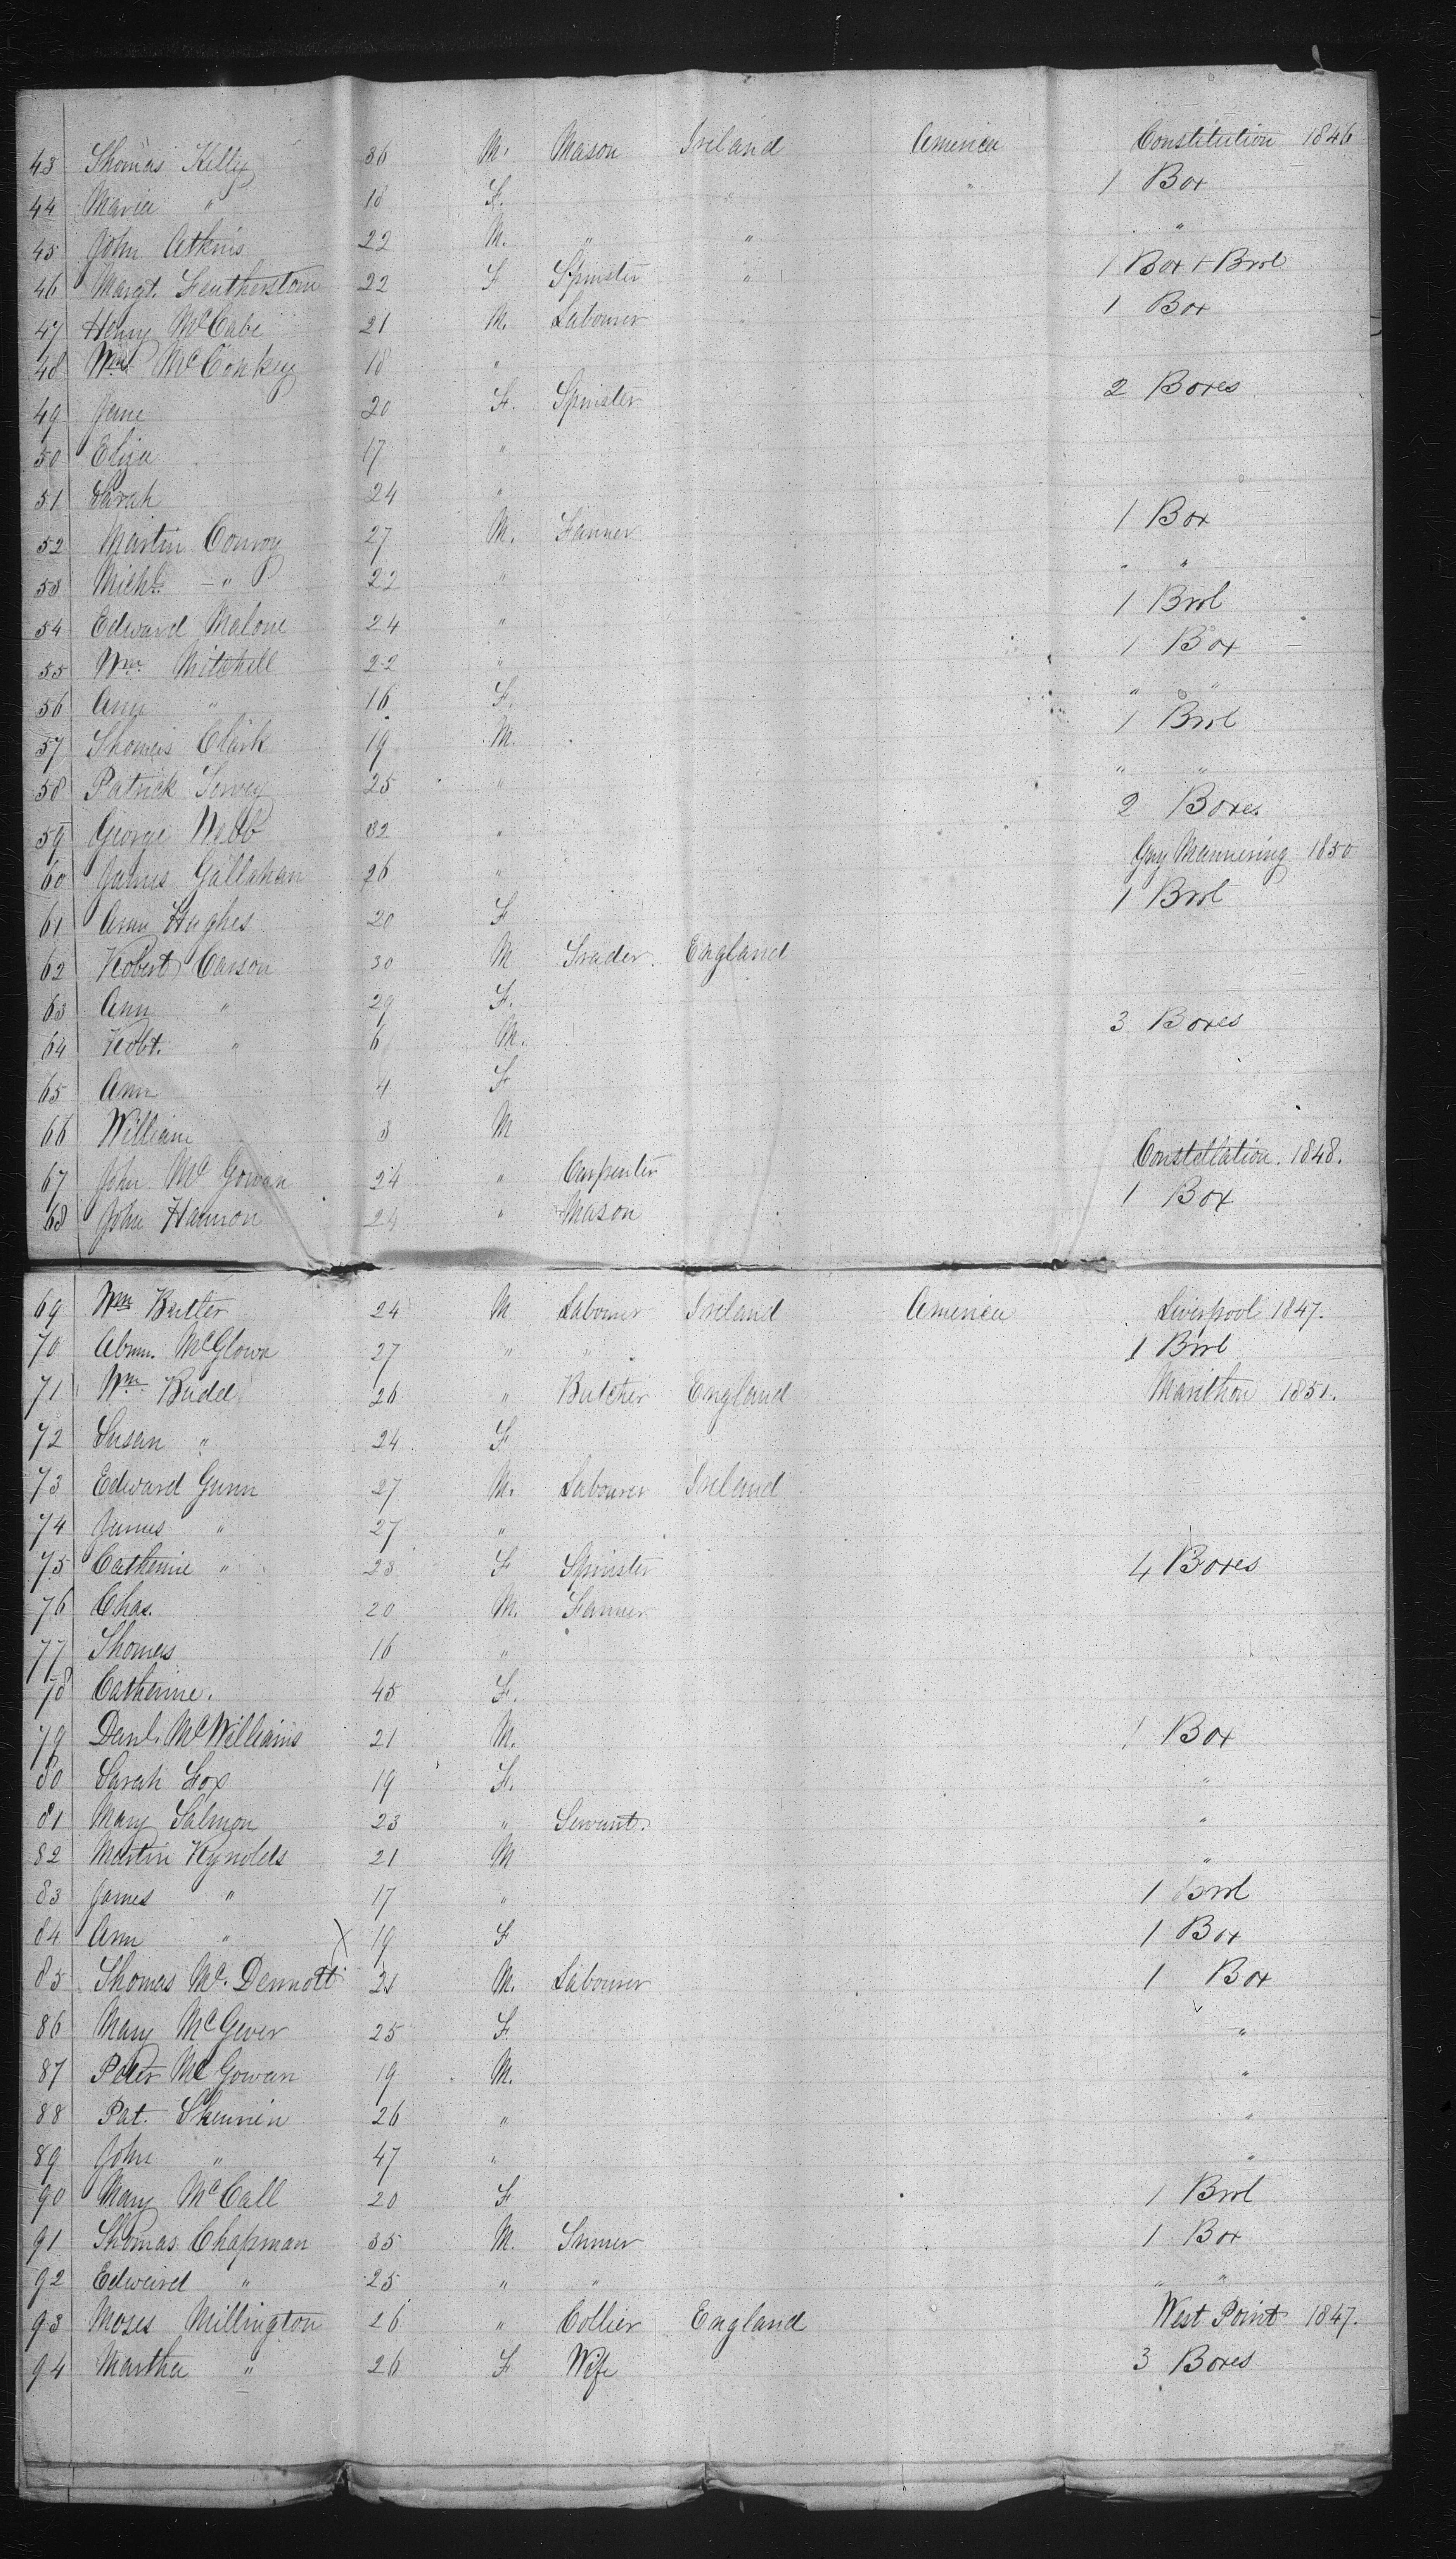 43 Thomas Kelly 36 M. Mason Ireland America Constitution 1846
44 Maria " 18 F. " " 1 Box
45 John Atkins 22 M. " " "
46 Margt. Featherstone 22 F Spinster " 1 Box + Brrl
47 Henry McCabe 21 M. Labourer 1 Box
48 Wm McConkey 18 "
49 Jane 20 F. Spinster 2 Boxes
50 Eliza 17 "
51 Sarah 24 "
52 Martin Conroy 27 M. Farmer 1 Box
53 Michl. " 22 " " "
54 Edward Malone 24 " 1 Brrl
55 Wm. Mitchell 22 " 1 Box
56 Ann " 16 F. " "
57 Thomas Clark 19 M. 1 Brrl
58 Patrick 25 " " "
59 George Webb 32 " 2 Boxes
60 James Gallahan 26 " Guy Mannering 1850
61 Ann Hughes 20 F 1 Brrl
62 Robert Carson 30 M Trader. England
63 Ann " 29 F.
64 Robt. " 6 M. 3 Boxes
65 Ann 4 F
66 William 3 M
67 John McGowan 24 " Carpenter Constellation. 1848.
68 John Hannon 24 " Mason 1 Box
69 Wm Butler 24 M Labourer Ireland America Liverpool 1847.
70 Abm. McGlown 27 " " 1 Brrl
71 Wm Budd 26 " Butcher England Marithon 1851.
72 Susan " 24 F
73 Edward Gunn 27 M. Labourer Ireland
74 James " 27 "
75 Catherine " 23 F Spinster 4 Boxes
76 Chas. 20 M. Farmer
77 Thomas 16 "
78 Catherine. 45 F.
79 Danl. McWilliams 21 M. 1 Box
80 Sarah Fox 19 F. "
81 Mary Salmon 23 " Servant. "
82 Martin Rynolds 21 M "
83 James " 17 " 1 Brrl
84 Ann " X 19 F 1 Box
85 Thomas Mc.Dermott 21 M. Labourer 1 Box
86 Mary McGever 25 F. "
87 Peter McGowan 19 M. "
88 Pat. 26 " "
89 John " 47 " "
90 Mary McCall 20 F 1 Brrl
91 Thomas Chapman 35 M. 1 Box
92 Edward " 25 " " " "
93 Moses Millington 26 " Collier England West Point 1847.
94 Martha " 26 F Wife 3 Boxes